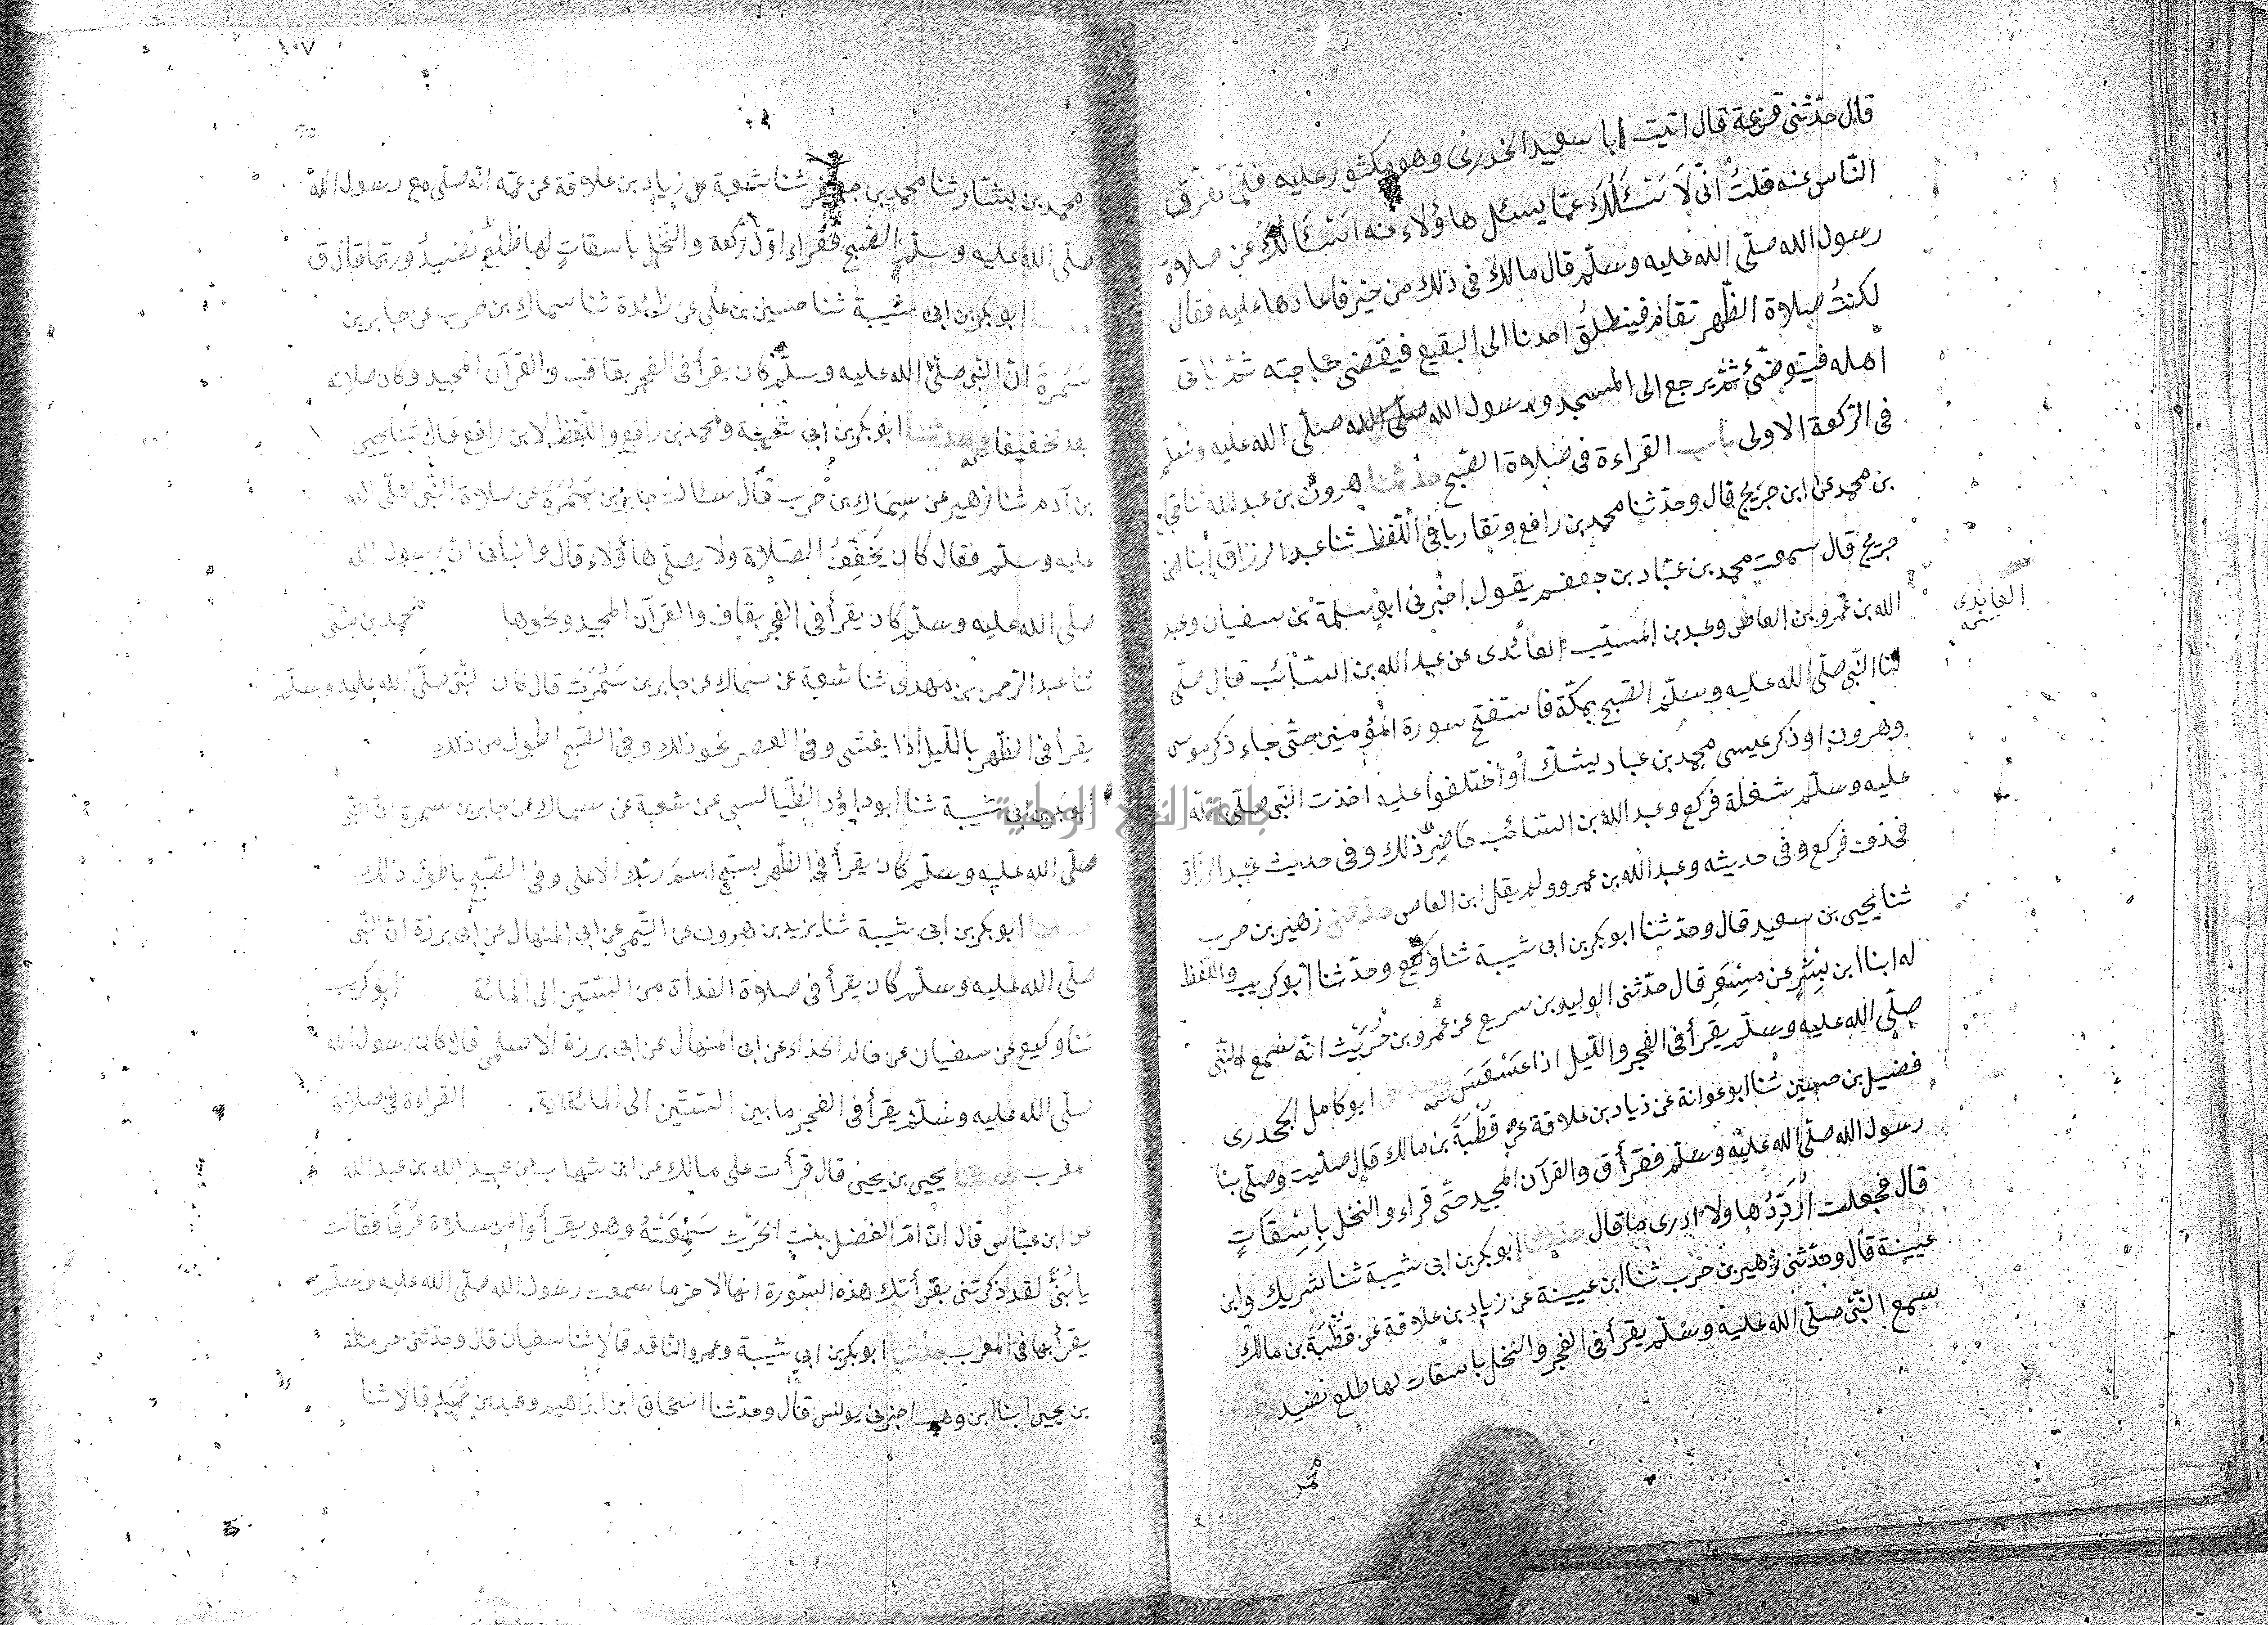 قال حدّثنى قزعة قال اتيت ابا سعيد الخدرى وهو مكثور عليه فلمّا تفرّق
النّاس عنه قلتُ انّى لَا سَئَلُكَ عمّا يسئل هاؤلاء عنه اسئالك عن صلاة
رسول الله صلّى الله عليه وسلّم قال مالك فى ذلك من خير فاعادها عليه فقال
لكنتُ صلاة الظّهر تقام فينطلق احدنا الى البقيع فيقضى حاجته ثمّ يأتى
اهله فيتوضّئُ ثمّ يرجع الى المسجد ورسول الله صلّى الله صلّى الله عليه وسلّم
فى الرّكعة الاولى باب القراءة فى صلاة الصّبح حدثنا هرون بن عبد الله ثنا حجاج
بن محمد عن ابن جريج قال وحدّثنا محمد بن رافع وتقاربا فى اللّفظ ثنا عبد الرزاق أبنا ابن
جريج قال سمعت محمد بن عبّاد بن جعفر يقول اخبرنى ابو سلمة بن سفيان وعبد
الله بن عمرو بن العاص وعبد بن المسيّب العائدى عن عبد الله بن السّائب قال صلّى
العابدى
لنا النّبى صلّى الله عليه وسلّم الصّبح بمكّة فاستفتح سورة المؤمنين حتّى جاء ذكر موسى
وهرون او ذكر عيسى محمد بن عباد يشكّ أو اختلفوا عليه اخذت النّبى صلّى الله
عليه وسلّم سَعلة فركع وعبد الله بن السّائب حاضِرٌ ذلك وفى حديث عبد الرزّاق
فحذف فركع وفى حديثه وعبد الله بن عمرو ولم يقل ابن العاص حدّثنى زهير بن حرب
ثنا يحيى بن سعيد قال وحدّثنا ابو بكر بن ابى شيبة ثنا وكيع وحدّثنا أبو كريب واللّفظ
له ابنا ابن بِشْرٍ عن مِسْعَرٍ قال حدّثنى الوليد بن سريع عن عمرو بن حُرَيْث انّه سمع النّبى
صلّى الله عليه وسلّم يقرأ فى الفجر واللّيل اذا عَسْعَسَ وحدثنى ابو كامل الجحدرى
فضيل بن حسين ثنا ابو عوانة عن زياد بن علاقة عن قُطْبَةَ بن مالك قال صلّيت وصلّى بنا
رسول الله صلّى الله عليه وسلّم فقرأ ق والقرآن المجيد حتّى قراء والنخل بَاسِقَاتٍ
قال فجعلت اُرَدِّدُها ولا ادرى ما قال حدثنا ابو بكر بن ابى شيبة ثنا شريك وابن
عيينة قال وحدّثنى زهير بن حَرب ثنا ابن عيينة عن زياد بن علاقة عن قُطْبَةَ بن مالك
سمع النّبى صلّى الله عليه وسلّم يقرأ فى الفجر والنخل باسقات لها طلع نضيد وحدثنا
محمد
١٠٧
محمد بن بشّار ثنا محمد بن جعفر ثنا شعبة عن زياد بن علاقة عن عمّه انّه صلّى مع رسول الله
صلّى الله عليه وسلّم الصّبح فقراء اوّل ركعة والنّخل باسقاتٍ لها طلعٌ نضيدٌ وربّما قال ق
حدثنا ابو بكر بن ابى شيبة ثنا حسين بن على عن زائدة ثنا سماك بن حرب عن جابر بن
سَمُرَةَ انّ النّبى صلّى الله عليه وسلّم كان يقرأ فى الفجر بقاف والقرآن المجيد وكان صلاته
بعد تخفيفا وحدثنا ابو بكر بن ابى شيبة ومحمد بن رافع واللّفظ لابن رافع قال ثنا يحيى
بن آدم ثنا زهير عن سِمَاك بن حرب قال سئالت جابر بن سَمُرَةَ عن صلاة النّبى صلّى الله
عليه وسلّم فقال كان يُخَفِّفُ الصّلاة ولا يصلّى هاؤلاء قال وانبأنى انّ رسول الله
صلّى الله عليه وسلّم كان يقرأ فى الفجر بقاف والقرآن المجيد ونحوها محمد بن مثنّى
ثنا عبد الرّحمن بن مهدى ثنا شعبة عن سماك عن جابر بن سَمُرَت قال كان النّبى صلّى الله عليه وسلّم
يقرأ فى الظّهر باللّيل اذا يغشى وفى العصر نحو ذلك وفى الصّبح اطول من ذلك
ابو بكر بن ابى شيبة ثنا ابو داؤد الطّيالسى عن شعبة عن سماك عن جابر بن سمرة انّ النّبى
صلّى الله عليه وسلّم كان يقرأ فى الظّهر بسبّح اسم ربّك الاعلى وفى الصّبح باطول ذلك
حدثنا ابو بكر بن ابى شيبة ثنا يزيد بن هرون عن التّيمى عن ابى المنهال عن أبى برزة انّ النّبى
صلّى الله عليه وسلّم كان يقرأ فى صلاة الغدأة من السّتّين الى المائة ابو كريب
ثنا وكيع عن سفيان عن خالد الحذاء عن ابى المنهال عن ابى برزة الاسلمى قال كان رسول الله
صلّى الله عليه وسلّم يقرأ فى الفجر ما بين السّتّين الى المائة اية. القراءة فى صلاة
المغرب حدثنا يحيى بن يحيى قال قرأت على مالك عن ابن شهاب عن عبيد الله بن عبد الله
عن ابن عبّاس قال انّ امّ الفضل بنت الحَرْث سَمِعَتْهُ وهو يقرأ والمرسلاة عُرْفًا فقالت
يا بُنَىَّ لقد ذكرتنى بقرأتك هذه السّورة انها لاخر ما سمعت رسول الله صلّى الله عليه وسلّم
يقرأ بها فى المغرب حدثنا ابو بكر بن ابى شيبة وعمرو النّاقد قالا ثنا سفيان قال وحدّثنى حرملة
بن يحيى ابنا ابن وهب اخبرنى يونس قال وحدّثنا اسحاق ابن ابراهيم وعبد بن حُمَيد قالا ثنا
جامعة النجاح الوطنية